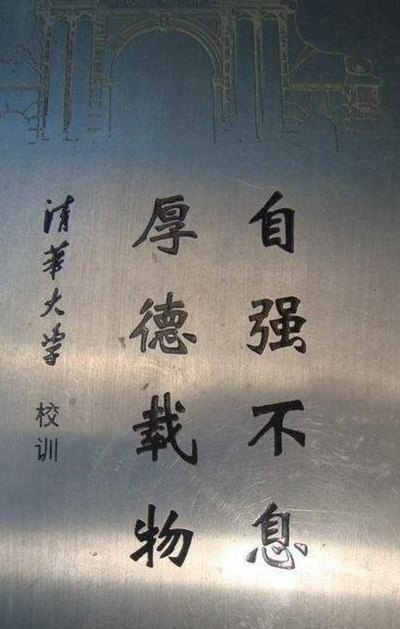 自强不息
厚德载物
清华大学 校训